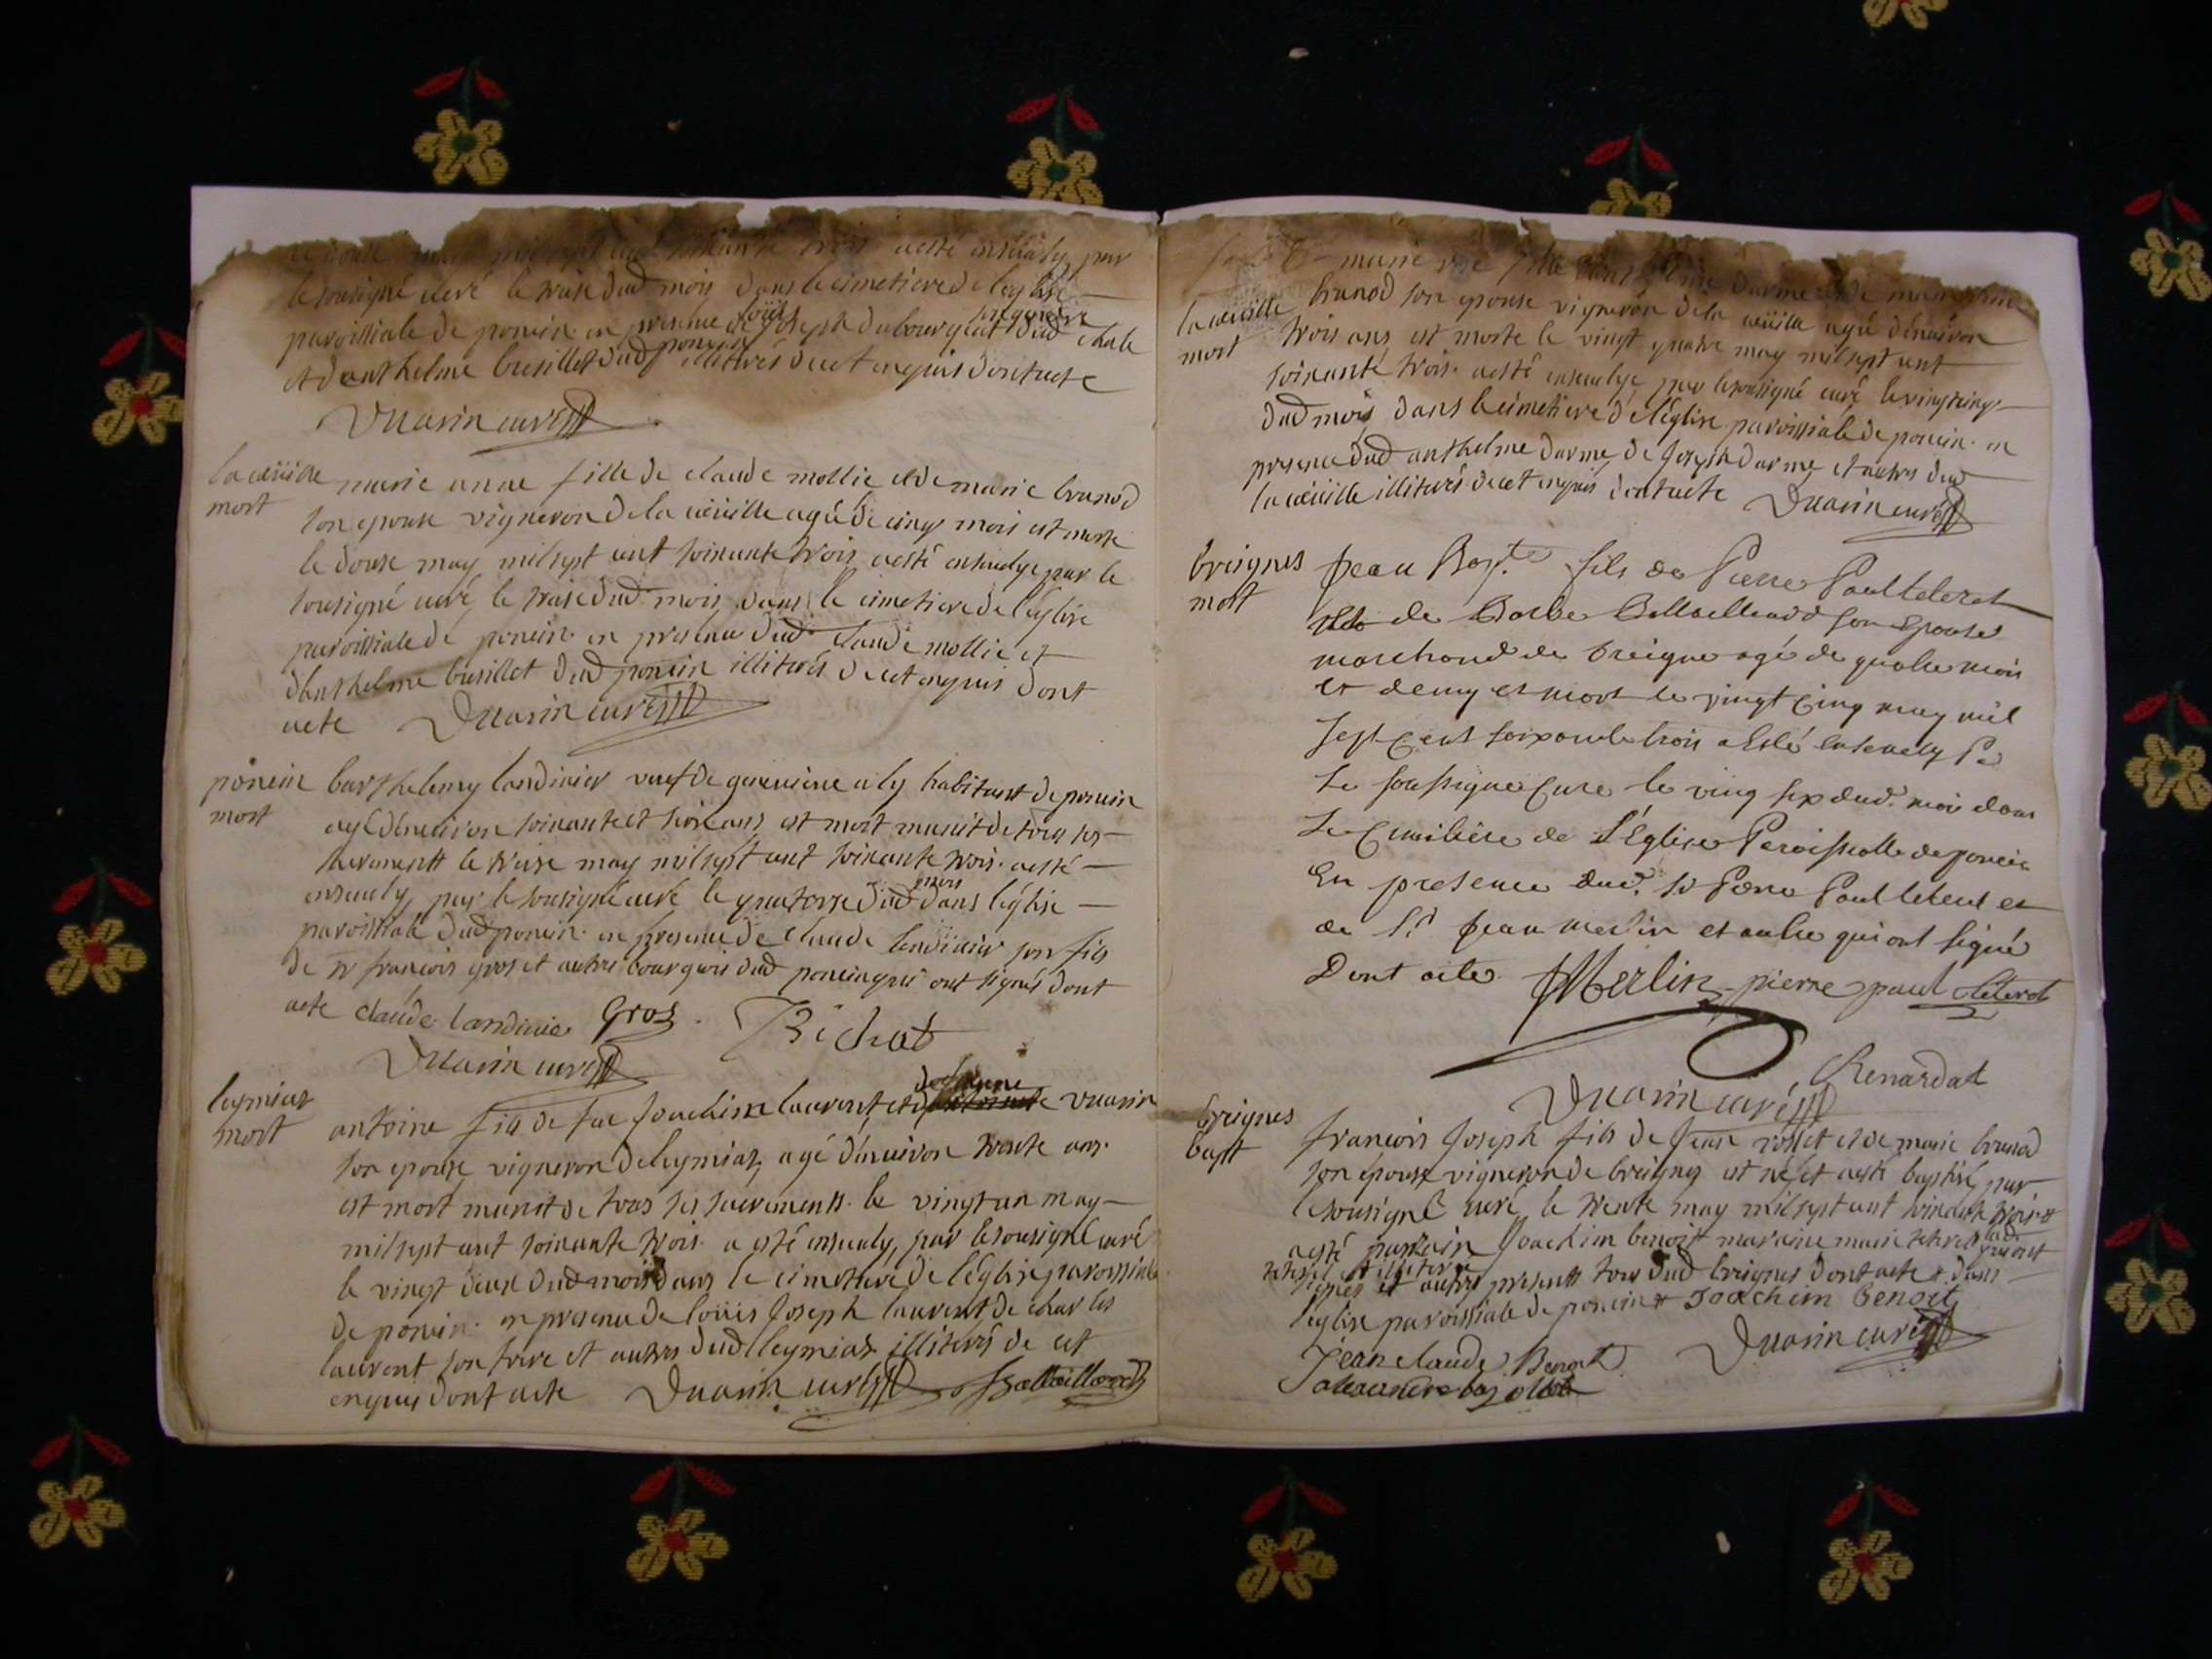 le douze may mil sept cent soixante trois a esté ensevely par
le sousigné curé le treise dud mois dans le cimetiere de l'eglise
paroissiale de poncin en presence de joseph dubourgeat dud
et d'anthelme busillet dud poncin illiterés de cet enquis dont acte
Vuarin curé
la cueille
mort
marie anne fille de claude mollie et de marie brunod
son epouse vigneron de la cueille agé de cinq mois est morte
le douse may mil sept cent soixante trois a esté ensevelye par le
sousigné curé le treise dud mois dans le cimetiere de l'eglise
paroissiale de poncin en presence dud claude mollie et
d'anthelme busillet dud poncin illiterés de cet enquis dont
acte Vuarin curé
poncin
mort
barthelemy landinier veuf de genevieve aly habitant de poncin
agé d'environ soixante et seise ans est mort munit de tous ses
sacrements le treise may mil sept cent soixante trois a esté
ensevely par le sousigné curé le quatorse dud mois dans l'église
paroissiale dud poncin en presence de claude landinier son fils
de sr françois gros et autres bourgeois dud poncin qui ont signés dont
acte claude landinie Gros Bichat
Vuarin curé
leymiat
mort
antoine fils de fue joachim laurent et de jeanne vuarin
son epouse vigneron de leymiat agé d'environ trente ans
est mort munit de tous ses sacrements le vingt un may
mil sept cent soixante trois a esté ensevely par le sousigné curé
le vingt deux dud mois dans le cimetiere de l'eglise paroissiale
de poncin en presence de loüis joseph laurent de charles
laurent son frere et autres dud leymiat illiterés de cet
enquis dont acte Vuarin curé Battaillard
la cueille
mort
marie fille d'anthelme darme et de
brunod son epouse vigneron de la cueille agé d'environ
trois ans est morte le vingt quatre may mil sept cent
soixante trois a esté ensevelye par le sousigné curé le vingt cinq
dud mois dans le cimetiere de l'église paroissiale de poncin en
presence dud anthelme darme de joseph darme et autres dud
la cueille illiterés de cet enquis dont acte Vuarin curé
breignes
mort
Jean Bapte fils de Pierre Paul teleret
de Barbe Battaillard son Epouse
marchand de breigne agé de quatre mois
et demy est mort le vingt Cinq may mil
sept Cent soixante trois a Esté Ensevely Par
Le soussigne Cure le ving six dud. mois dans
Le Cimitière de L'Église Paroissialle de poncin
En presence dud. Sr Pierre Paul teleret et
de Sr. Jean Merlin et autre qui ont signé
Dont acte. JMerlin pierre paul teleret
Renardat
Vuarin curé
breignes
bapt
francois joseph fils de jean rosset et de marie brunod
son épouse vigneron de breignes est né et a esté baptisé par
le sousigné curé le trente may mil sept cent soixante trois
a esté parrain joachim benoist maraine marie
signés et autres presents tous dud breignes dont acte dans
l'église paroissiale de poncin Joachim benoit
Jean claude Benoit Vuarin curé